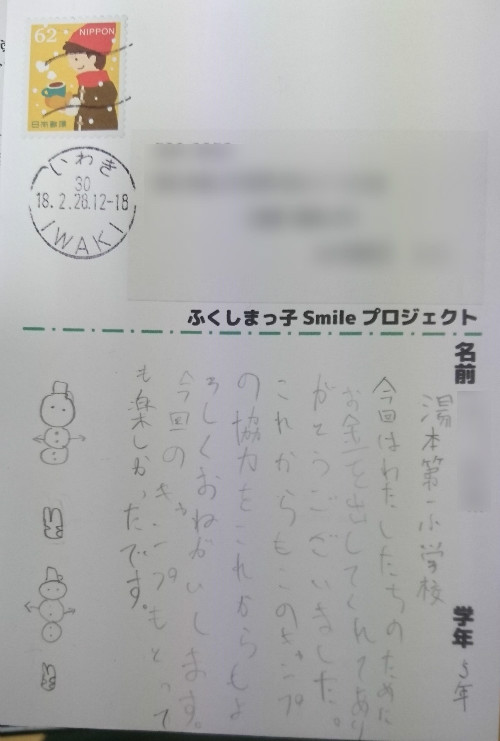 62
NIPPON
日本郵便
いわき
30
18.2.28.12-18
IWAKI
ふくしまっ子 Smile プロジェクト
名前
学年 5年
湯本第一小学校
今回はわたしたちのために
お金を出してくれてあり
がとうございました。
これからもこのキャンプ
の協力をこれからもよ
ろしくおねがいします。
今回のキャンプもとって
も楽しかったです。